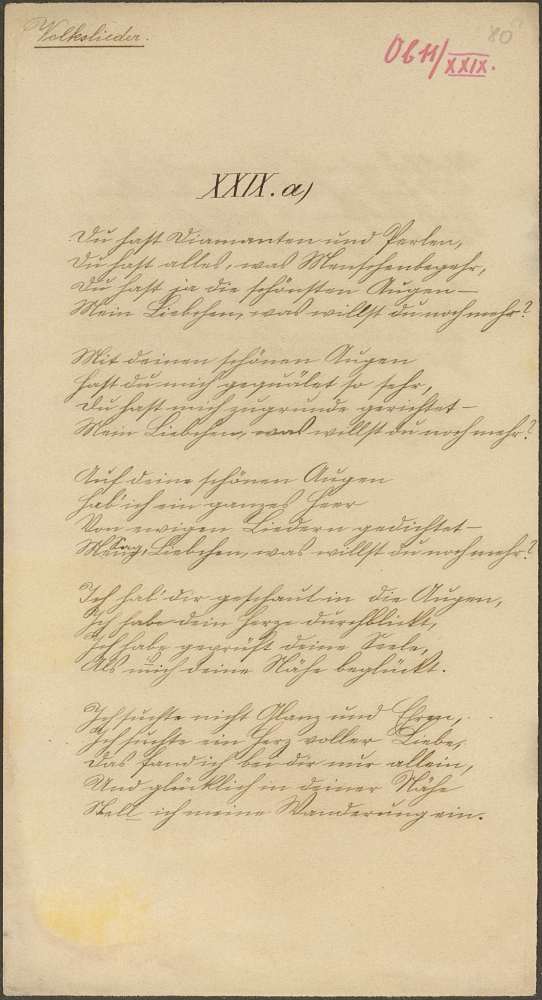 Volkslieder.
Ob 11/XXIX.
80
XXIX. a)
Du hast Diamanten und Perlen,
Du hast alles, was Menschenbegehr,
Du hast ja die schönsten Augen –
Mein Liebchen, was willst du noch mehr?
Mit deinen schönen Augen
Hast du mich gequälet so sehr,
Du hast mich zugrunde gerichtet –
Mein Liebchen, was willst du noch mehr?
Auf deine schönen Augen
Hab ich ein ganzes Heer
Von ewigen Liedern gedichtet –
Sag, Liebchen, was willst du noch mehr?
Ich hab' dir geschaut in die Augen,
Ich habe dein Herze durchblickt,
Ich habe geprüft deine Seele,
Als mich deine Nähe beglückt.
Ich suchte nicht Glanz und Ehren,
Ich suchte ein Herz voller Liebe,
Das fand ich bei dir nur allein,
Und glücklich in deiner Nähe
Stell ich meine Wanderung ein.